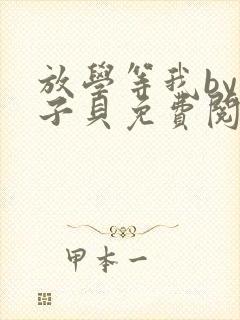 放學等我by
子貝免費閱
甲本一